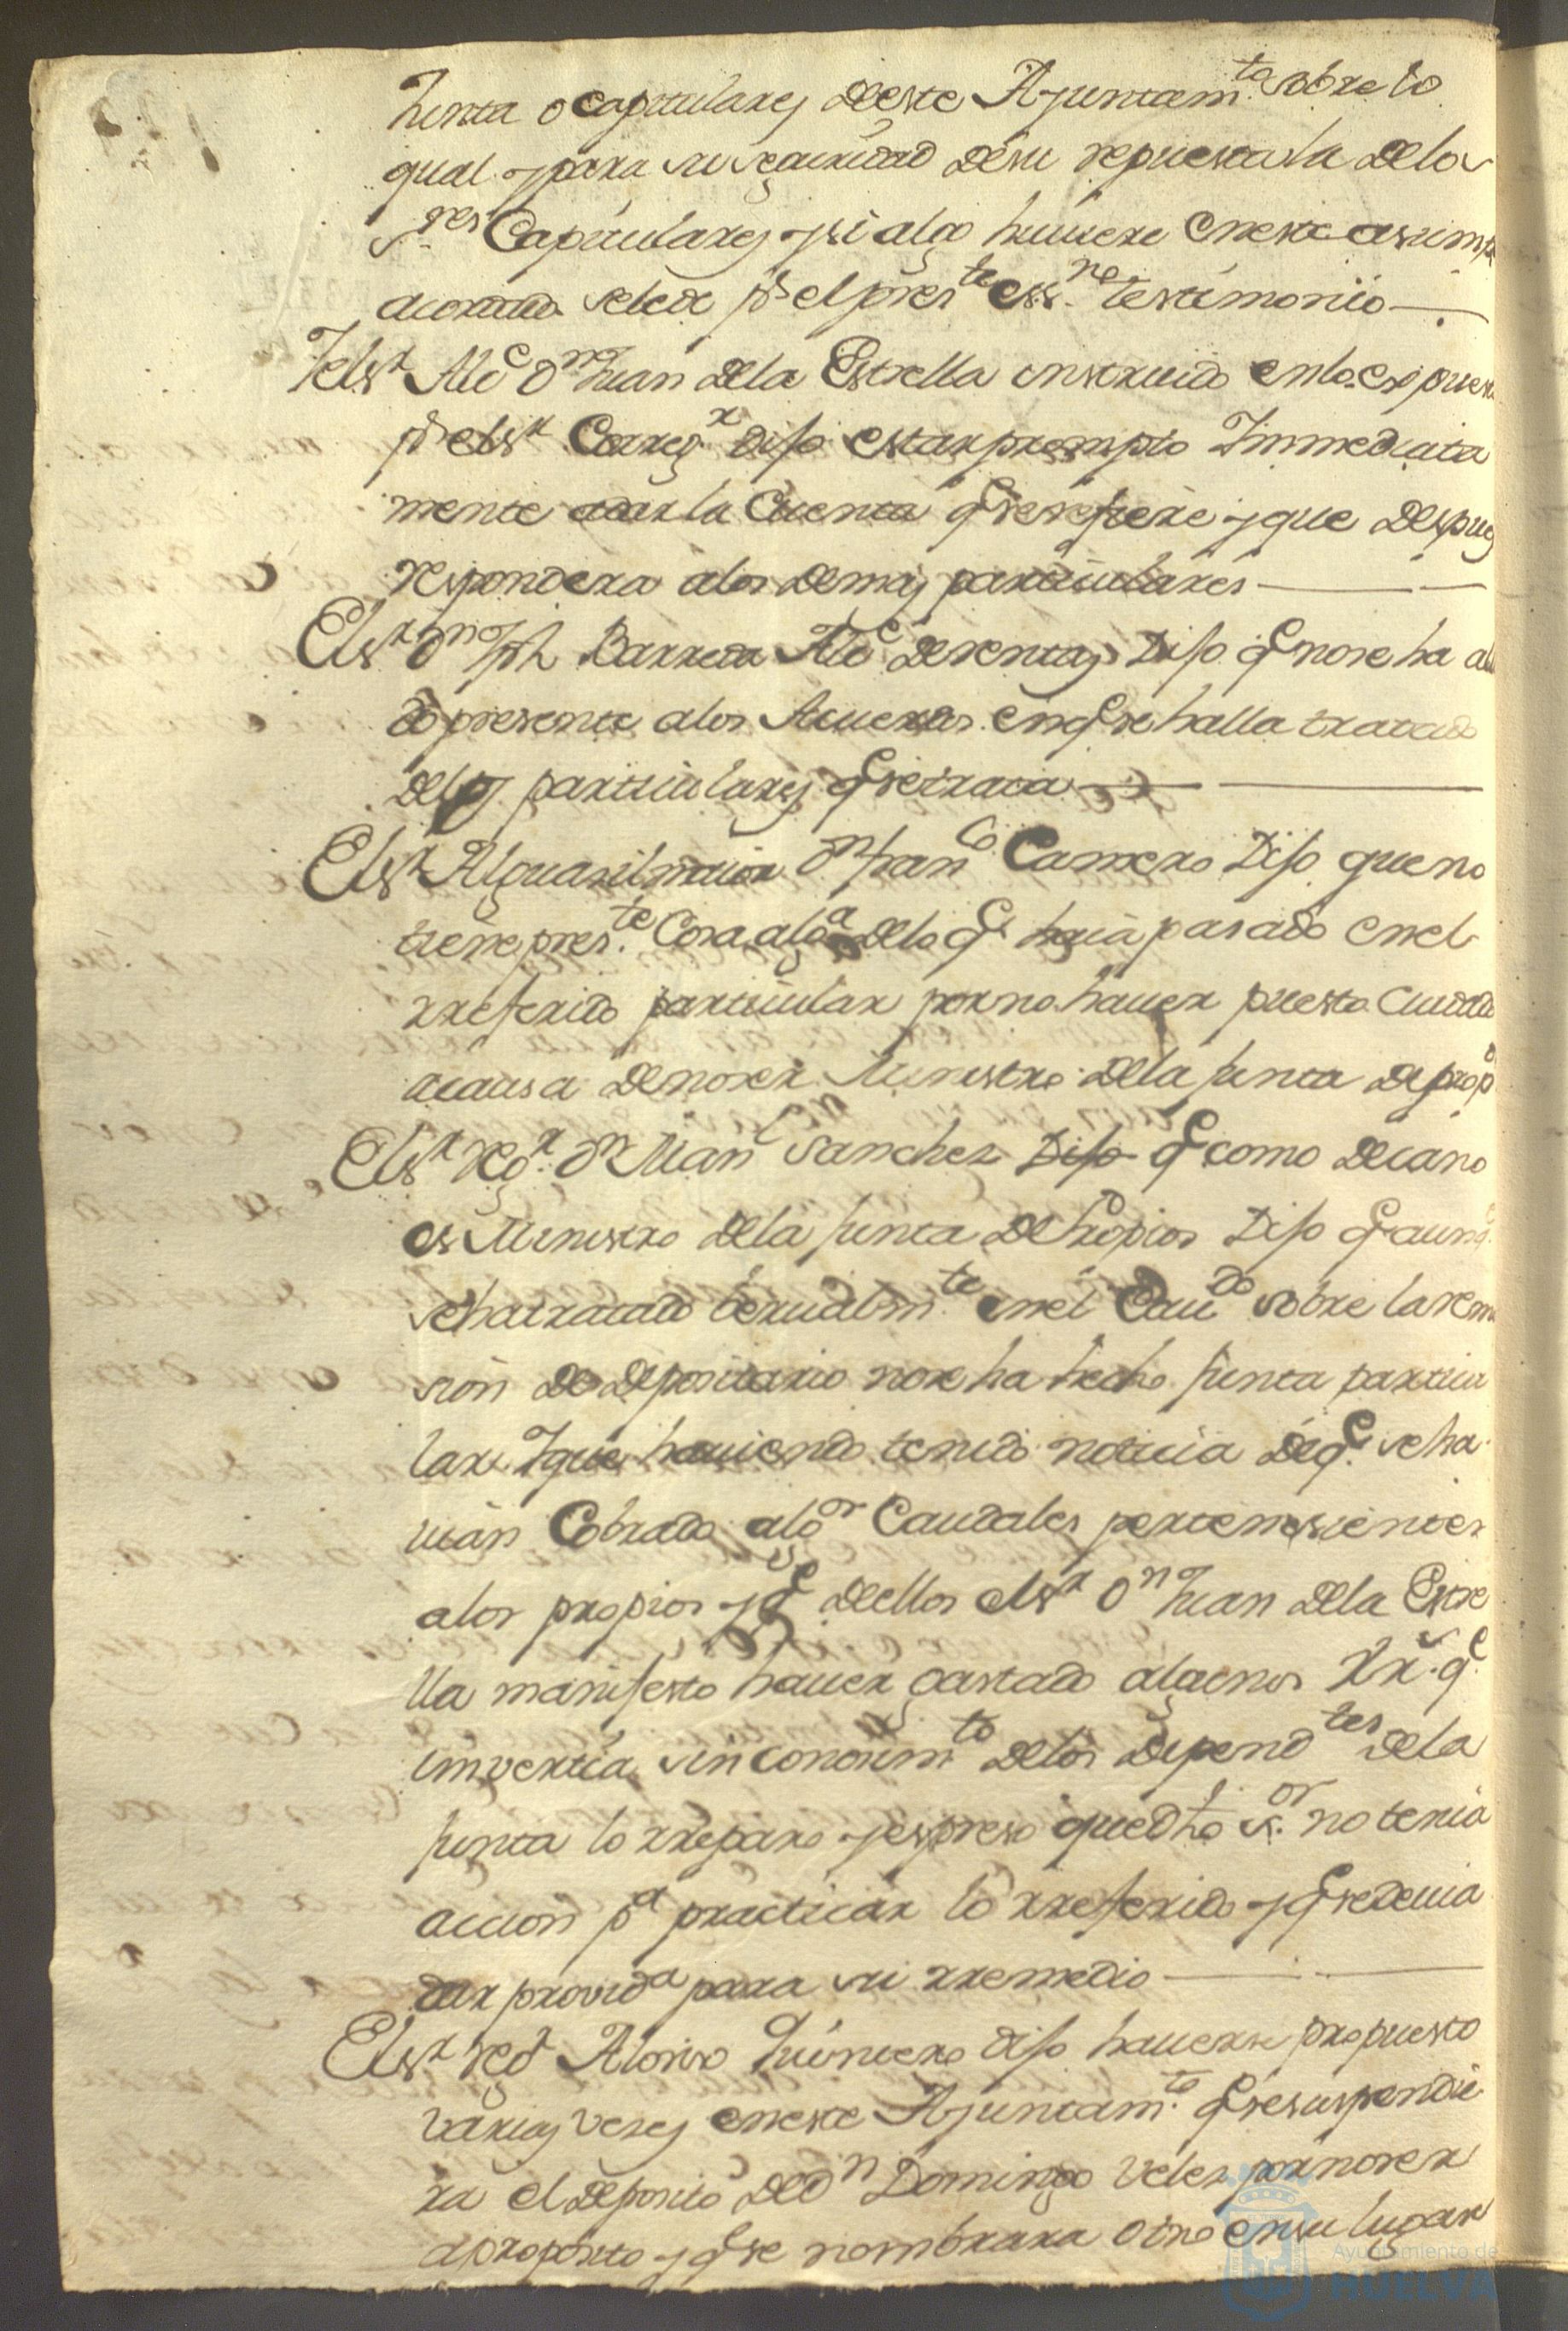 Junta o capitulares deeste Ajuntam.to sobre lo
qual y para su seguridad désu repuesta la de los
S.res Capitulares y si algo huuiere eneste asumpto
acordado sele dé p.r el pres.te ess.no testimonio
Y el s.r Alc.e D.n Juan dela Estrella instruido enlo expuesto
p.r el s.r Correg.r Dijo estar prompto Immediata
mente adar la Cuenta q.e se refiere y que despues
respondera alos demas particulares
El s.r D.n Jph Barreda Alc.e de rentas Dijo q.e nose ha alla
do presente alos Acuerdos enq.e se halla tratado
delos particulares q.e se trata
El s.r Alguasil maior D.n Fran.co Camero Dijo que no
tiene pres.te Cosa alg.a delo q.e haia pasado enel
rreferido particular por no hauer puesto Cuidado
acausa de no ser Ministro dela Junta de prop.s
El s.r reg.r D.n Man.l Sanchez Dijo q.e como decano
es Ministro dela Junta de Propios Dijo q.e aunq.e
seha tratado berualm.te enel Cau.do sobre la remo
sion de depositario nose ha hecho Junta particu
lar Y que hauiendo tenido noticia de q.e se ha
uian Cobrado alg.os Caudales pertenescientes
alos propios y q.e deellos el s.r D.n Juan dela Estre
lla manifesto hauer gastado algunos Rx. q.e
imvertia sin conosim.to delos Depend.tes dela
Junta lo rreparo y espreso que dho s.or no tenia
accion p.a practicar lo rreferido y q.e se deuia
dar provid.a para su rremedio
El s.r reg.r Alonso Quintero dijo hauerse propuesto
varias veses eneste Ajuntam.to q.e se suspendie
ra el deposito de D.n Domingo Veles por no ser
aproposito y q.e se nombrara otro ensu lugar
Ayuntamiento de
HUELVA